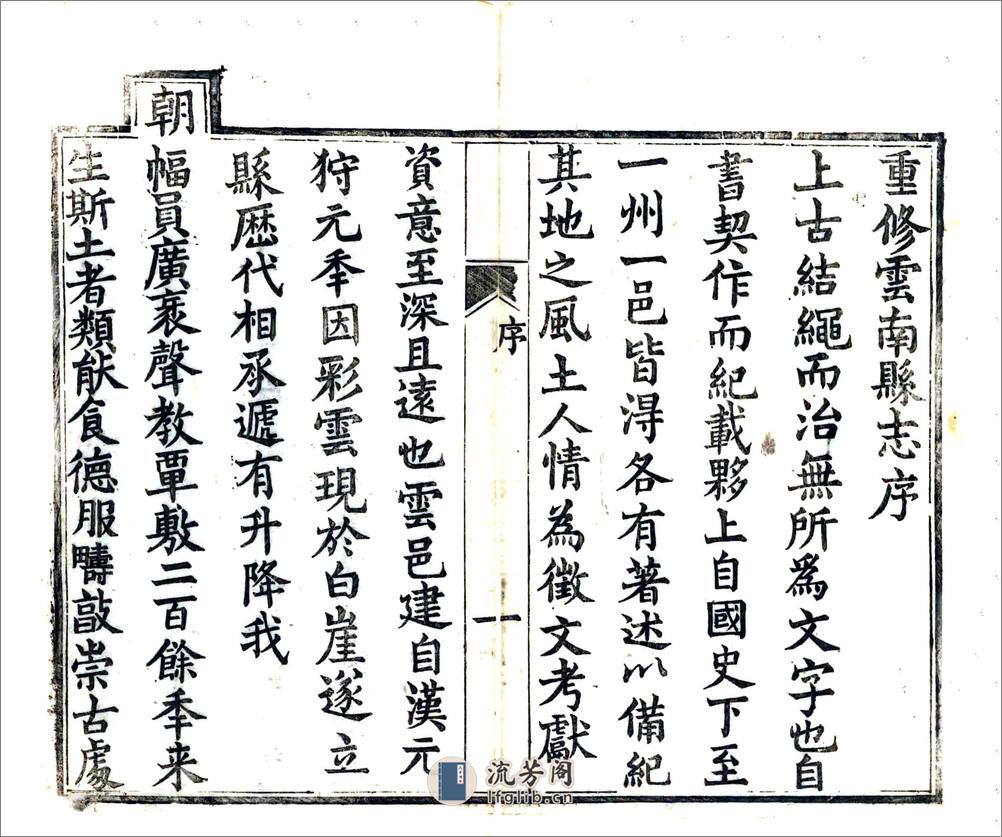 重修雲南縣志序
上古結繩而治無所為文字也自
書契作而紀載夥上自國史下至
一州一邑皆得各有著述以備紀
其地之風土人情為徵文考獻
序
一
資意至深且遠也雲邑建自漢元
狩元年因彩雲現於白崖遂立
縣歷代相承遞有升降我
朝幅員廣袤聲教覃敷二百餘年来
生斯土者類能食德服疇敦崇古處
流芳阁
lfglib.cn